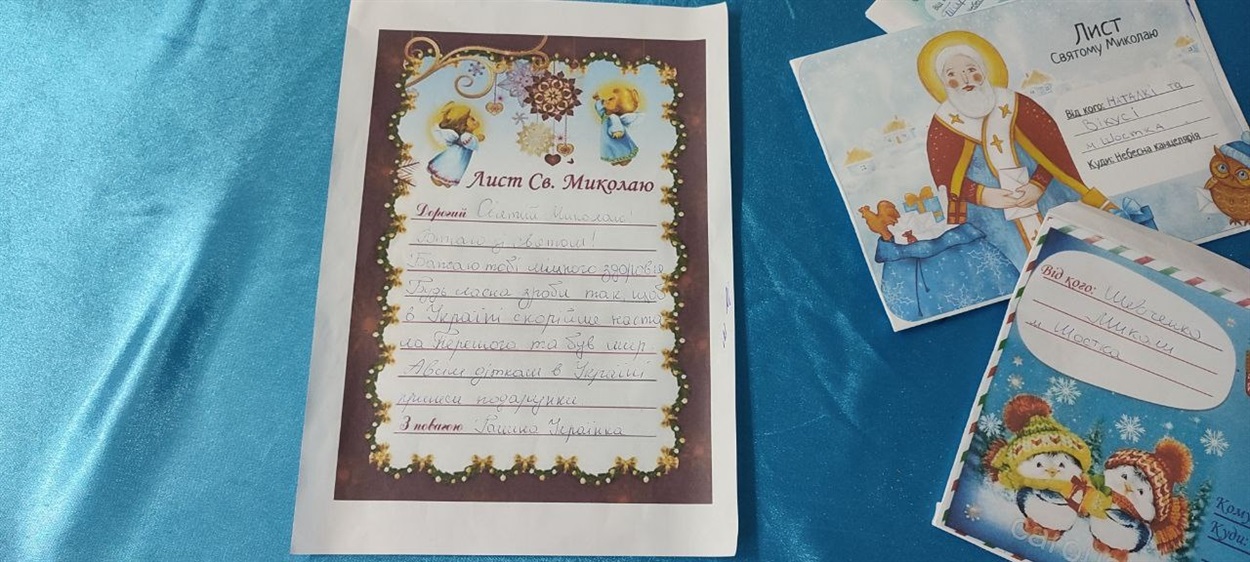 Лист Св. Миколаю
Дорогий Святий Миколаю!
Вітаю зі святом!
Бажаю тобі міцного здоров'я
Будь ласка зроби так, щоб
в Україні скорійше наста
ла Перемога та був мир.
А всім діткам в Україні
принеси подарунки
З повагою
Українка
Лист
Святому Миколаю
Від кого: Наталкі та
Вікусі
м Шостка
Куди: Небесна канцелярія
Від кого: Шевченко
Микош
м Шостка
Кому
Куди: